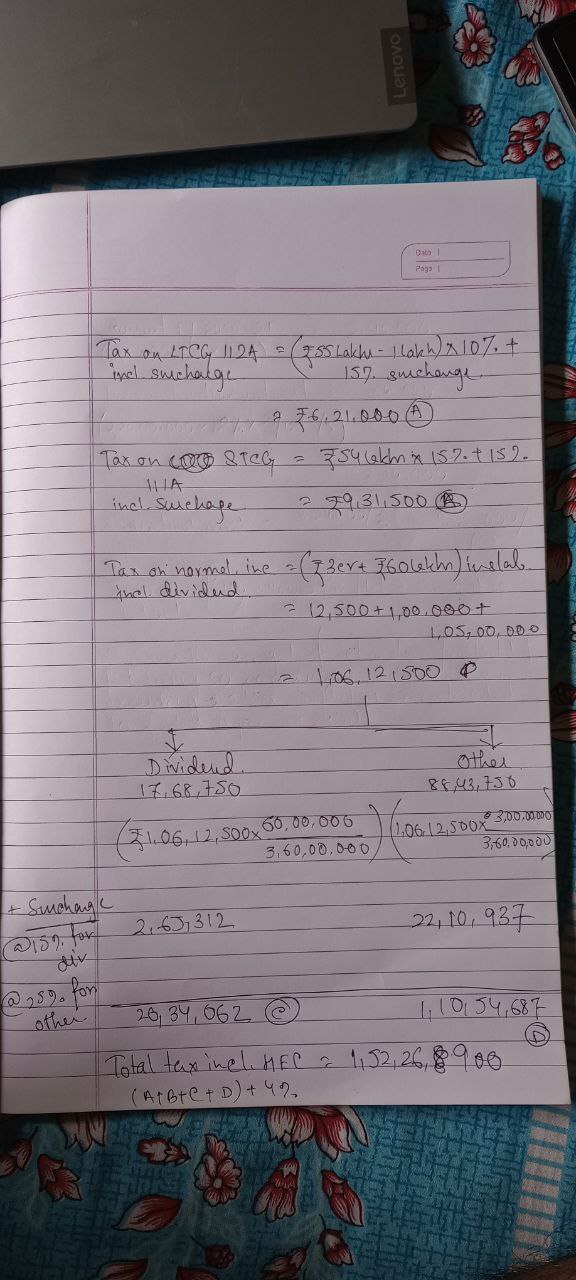 Lenovo
Date |
Page |
Tax on LTCG 112A = (₹55 Lakhs - 1 Lakh) x 10% +
incl. surcharge 15% surcharge
= ₹6,21,000 (A)
Tax on STCG = ₹54 lakhs x 15% + 15%
111A
incl. Surchage = ₹9,31,500 (B)
Tax on normal inc = (₹3cr + ₹60 lakhs) in slab
incl. dividend
= 12,500 + 1,00,000 +
1,05,00,000
= 1,06,12,500
Dividend Other
17,68,750 88,43,750
(₹1,06,12,500 x 60,00,000 / 3,60,00,000) (1,06,12,500 x 3,00,00,000 / 3,60,00,000)
+ Surcharge
@15% for div 2,65,312 22,10,937
@25% for other 20,34,062 (C) 1,10,54,687 (D)
Total tax incl. HEC = 1,52,26,900
(A+B+C+D) + 4%